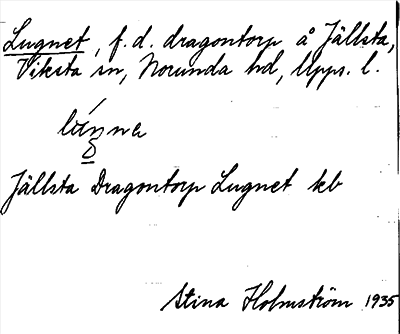 Lugnet, f.d. dragontorp å Jällsta,
Viksta sn, Norunda hd, Upps. l.
Jällsta Dragontorp Lugnet kb
Stina Holmström 1935